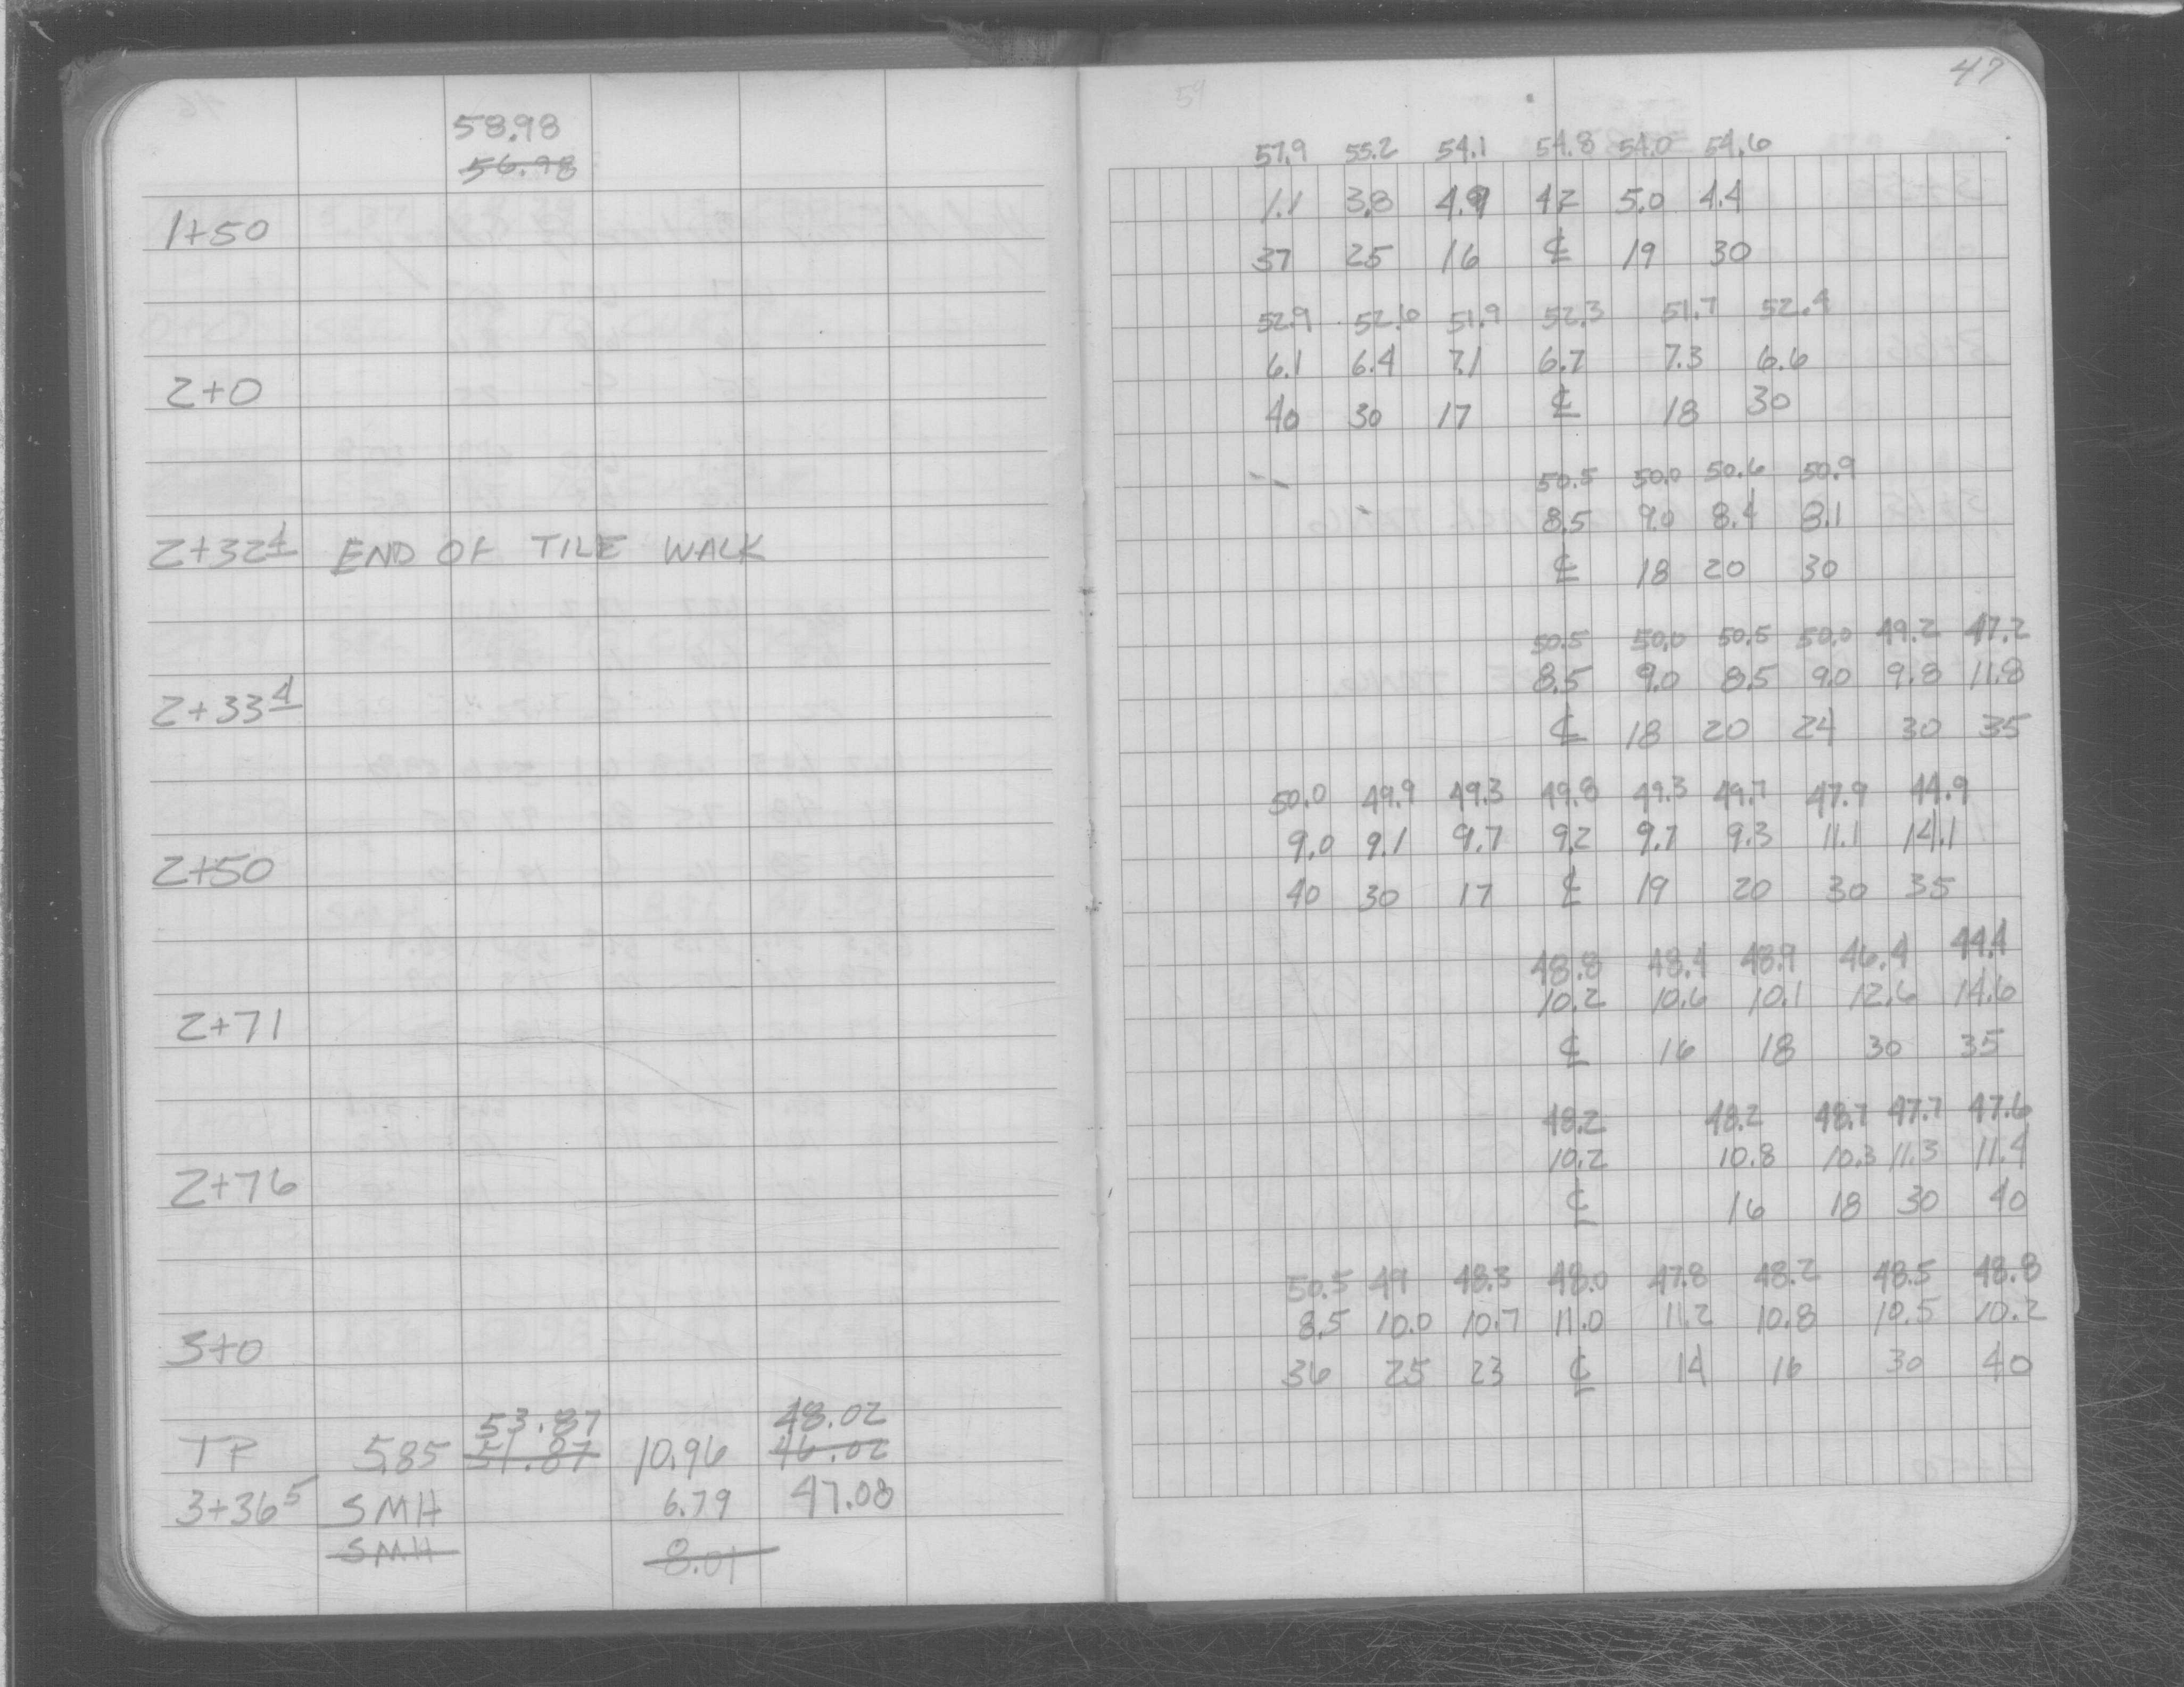 58.98
56.98
1+50
2+0
2+32 4 END OF TILE WALK
2+33 4
2+50
2+71
2+76
3+0
53.87 48.02
TP 5.85 51.87 10.96 46.02
3+36 5 SMH 6.79 47.08
SMH 8.01
47
57.9 55.2 54.1 54.8 54.0 54.6
1.1 3.8 4.9 4.2 5.0 4.4
37 25 16 ℄ 19 30
52.9 52.6 51.9 52.3 51.7 52.4
6.1 6.4 7.1 6.7 7.3 6.6
40 30 17 ℄ 18 30
50.5 50.0 50.6 50.9
8.5 9.0 8.4 8.1
℄ 18 20 30
50.5 50.0 50.5 50.0 49.2 47.2
8.5 9.0 8.5 9.0 9.8 11.8
℄ 18 20 24 30 35
50.0 49.9 49.3 49.8 49.3 49.7 47.9 44.9
9.0 9.1 9.7 9.2 9.7 9.3 11.1 14.1
40 30 17 ℄ 19 20 30 35
48.8 48.4 48.9 46.4 44.4
10.2 10.6 10.1 12.6 14.6
℄ 16 18 30 35
48.2 48.2 48.7 47.7 47.6
10.2 10.8 10.3 11.3 11.4
℄ 16 18 30 40
50.5 49 48.3 48.0 47.8 48.2 48.5 48.8
8.5 10.0 10.7 11.0 11.2 10.8 10.5 10.2
36 25 23 ℄ 14 16 30 40